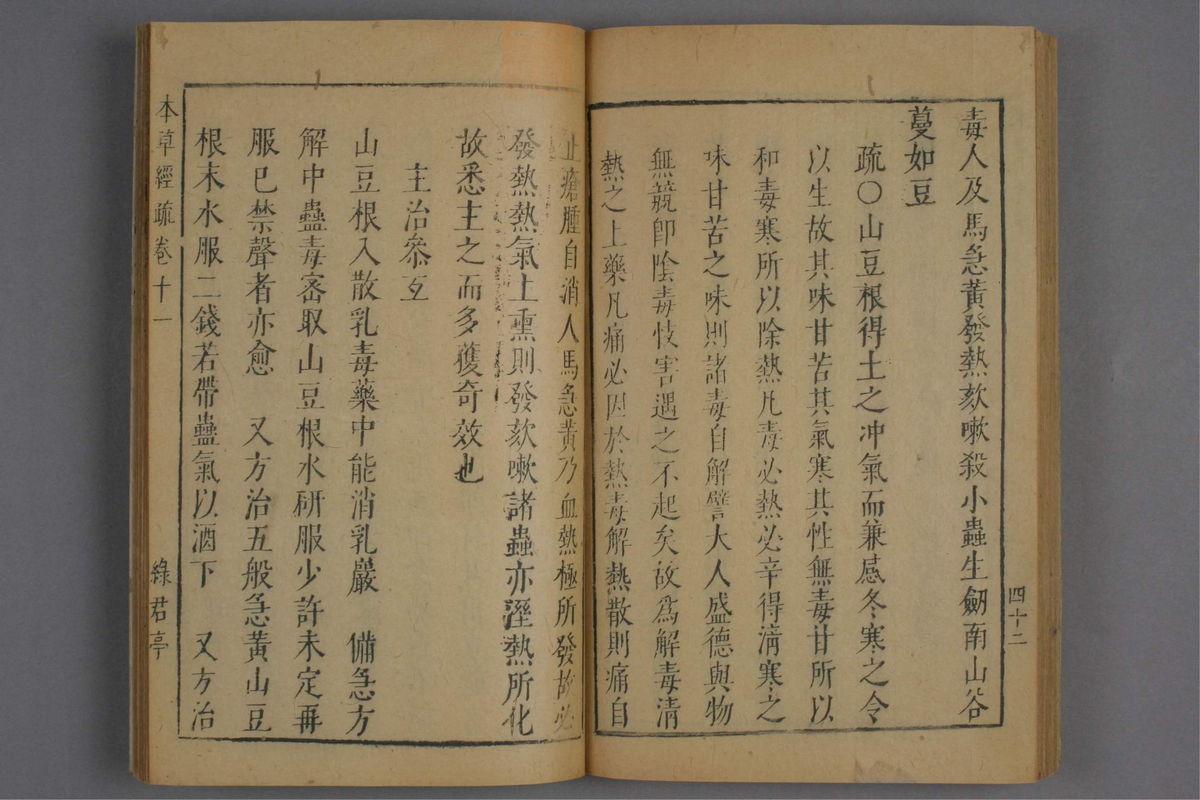 四十二
毒人及馬急黃發熱欬嗽殺小蟲生劒南山谷
蔓如豆
疏〇山豆根得土之冲氣而兼感冬寒之令
以生故其味甘苦其氣寒其性無毒甘所以
和毒寒所以除熱凡毒必熱必辛得淸寒之
味甘苦之味則諸毒自解譬大人盛德與物
無競卽陰毒忮害遇之不起矣故爲解毒淸
熱之上藥凡痛必因於熱毒解熱散則痛自
止瘡腫自消人馬急黃乃血熱極所發故必
發熱熱氣上熏則發欬嗽諸蟲亦溼熱所化
故悉主之而多獲奇效也
主治叅互
山豆根入散乳毒藥中能消乳巖　備急方
解中蠱毒密取山豆根水硏服少許未定再
服已禁聲者亦愈　又方治五般急黃山豆
根末水服二錢若帶蠱氣以酒下　又方治
本草經疏卷十一
綠君亭